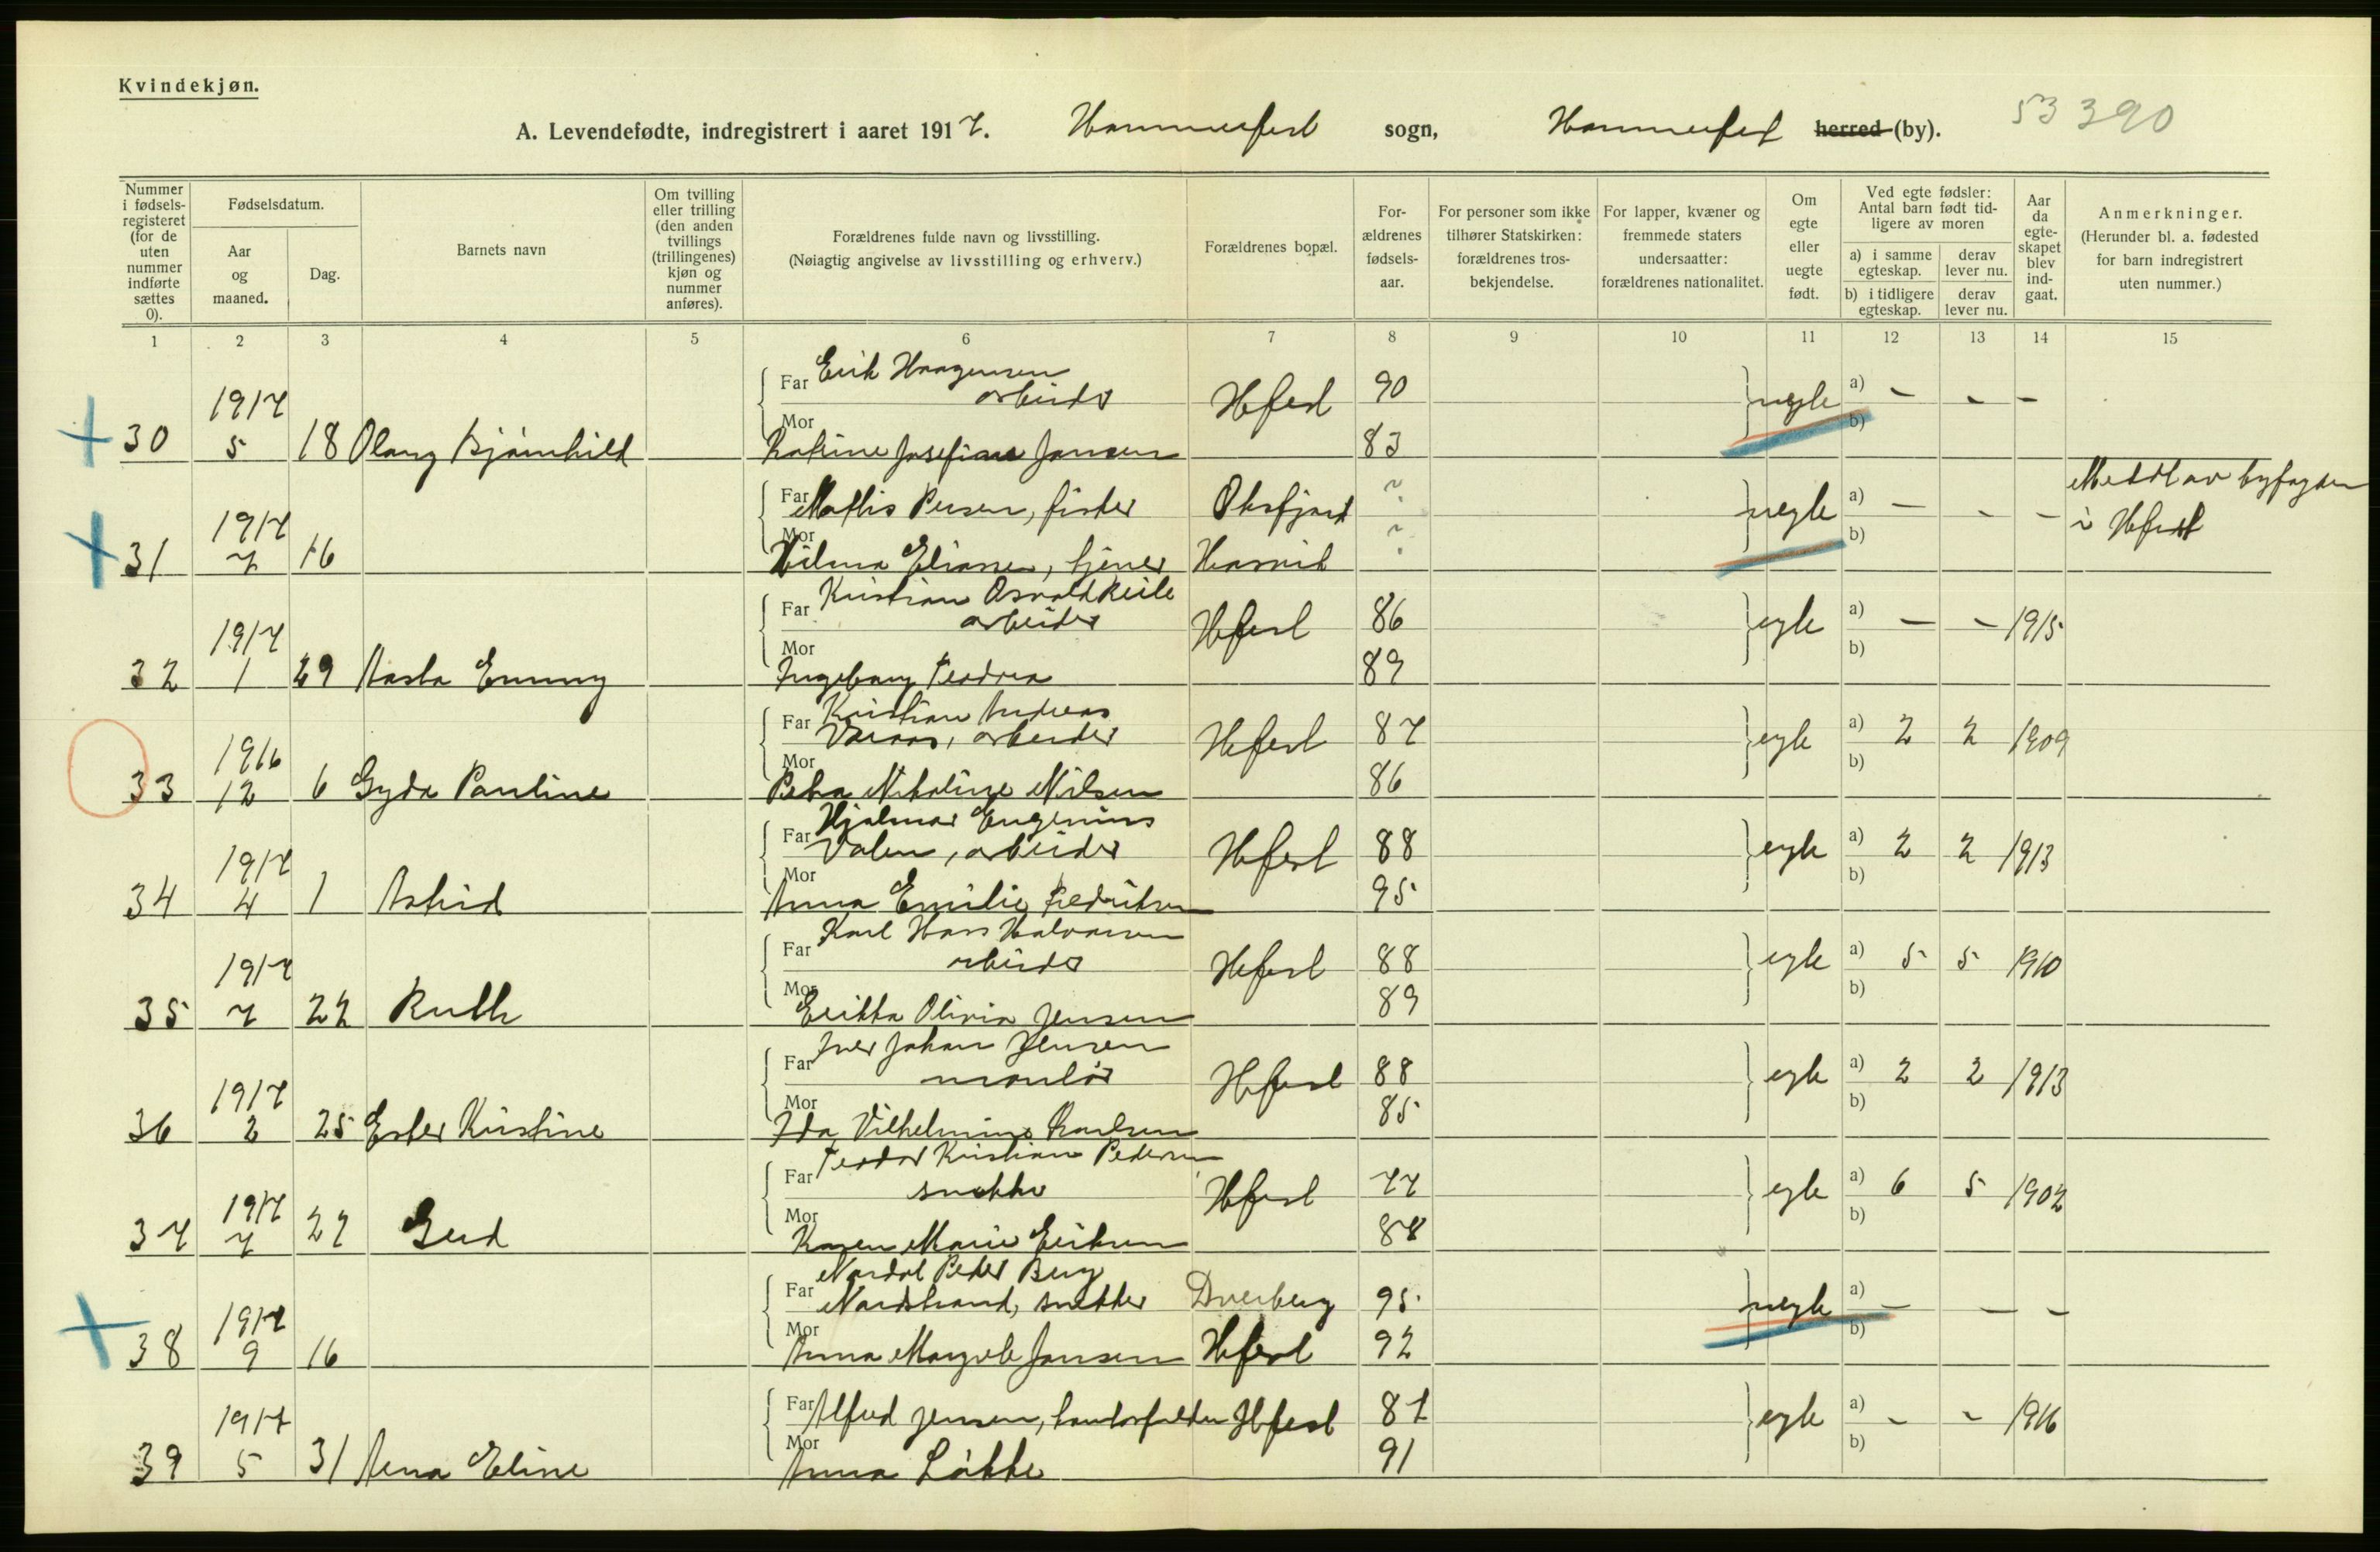 Kvindekjøn.
A. Levendefødte, indregistrert i aaret 1917. Hammerfest sogn, Hammerfest herred (by). 53 390
Nummer i fødsels-registeret (for de uten nummer indførte sættes 0).
Fødselsdatum.
Aar og maaned.
Dag.
Barnets navn
Om tvilling eller trilling (den anden tvillings (trillingenes) kjøn og nummer anføres).
Forældrenes fulde navn og livsstilling.
(Nøiagtig angivelse av livsstilling og erhverv.)
Forældrenes bopæl.
For-ældrenes fødsels-aar.
For personer som ikke tilhører Statskirken: forældrenes tros-bekjendelse.
For lapper, kvæner og fremmede staters undersaatter: forældrenes nationalitet.
Om egte eller uegte født.
Ved egte fødsler: Antal barn født tid-ligere av moren
a) i samme egteskap.
derav lever nu.
b) i tidligere egteskap.
derav lever nu.
Aar da egte-skapet blev ind-gaat.
Anmerkninger.
(Herunder bl. a. fødested for barn indregistrert uten nummer.)
1 2 3 4 5 6 7 8 9 10 11 12 13 14 15
Far Erik Haagensen
arbeider Hfest 90 uegte a) - - -
1917
Mor b)
30 5 18 Olaug Bjørnhild Katrine Josefine Jansen 83
Far Mathis Persen, fisker Oksfjord ? uegte a) - - - Meddt av byfogden
1917 i Hfest
Mor b)
31 7 16 Vilma Eliassen, tjener Hasvik ?
Far Kristian Osvald
arbeider Hfest 86 egte a) - - 1915
1917
Mor b)
32 1 29 Aasta Emmy Ingeborg Teodora 89
Far Kristian Andreas
arbeider Hfest 87 egte a) 2 2 1909
1916
Mor b)
33 12 6 Gyda Pauline Petra Nikoline Nilsen 86
Far Hjalmar Eugenius
Valen, arbeider Hfest 88 egte a) 2 2 1913
1917
Mor b)
34 4 1 Astrid Anna Emilie Fredriksen 95
Far Karl Hans Halvorsen
arbeider Hfest 88 egte a) 5 5 1910
1917
Mor b)
35 7 22 Ruth Erikka Olivia Jensen 89
Far Iver Johan Jensen
montør Hfest 88 egte a) 2 2 1913
1917
Mor b)
36 2 25 Ester Kristine Ida Vilhelmine Karlsen 85
Far Teodor Kristian Pedersen
snekker Hfest 77 egte a) 6 5 1902
1917
Mor b)
37 7 27 Gerd Karen Marie Eriksen
Far Nordal Peder Berg
Nordstrand, snekker Dverberg 95 uegte a) - - -
1917
Mor b)
38 9 16 Anna Margrete Jansen Hfest 92
Far Alfred Jensen, Hfest 81 egte a) - - 1916
1917
Mor b)
39 5 31 Anna Eline Anna Løkke 91